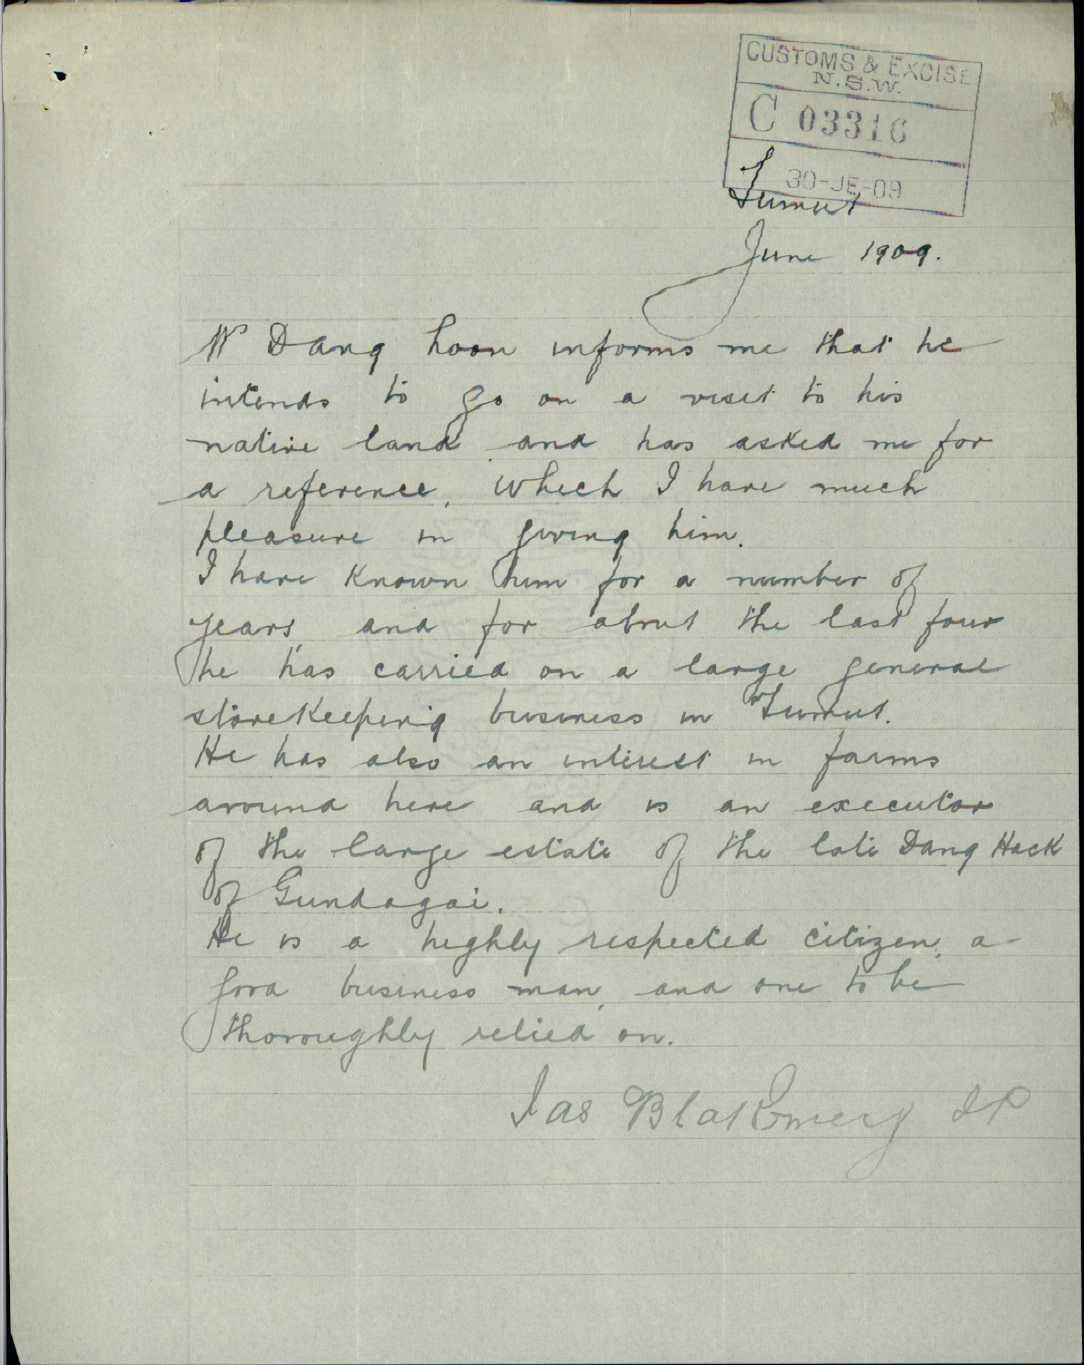 CUSTOMS & EXCISE
N.S.W.
C 03316
30-JE-09
Tumut
June 1909.
W Dang hoon informs me that he
intends to go on a visit to his
native land and has asked me for
a reference, which I have much
pleasure in giving him.
I have known him for a number of
years, and for about the last four
he has carried on a large general
storekeeping business in Tumut.
He has also an interest in farms
around here and is an executor
of the large estate of the late Dang Hack
of Gundagai.
He is a highly respected citizen, a
good business man, and one to be
thoroughly relied on.
Jas Blakeney JP